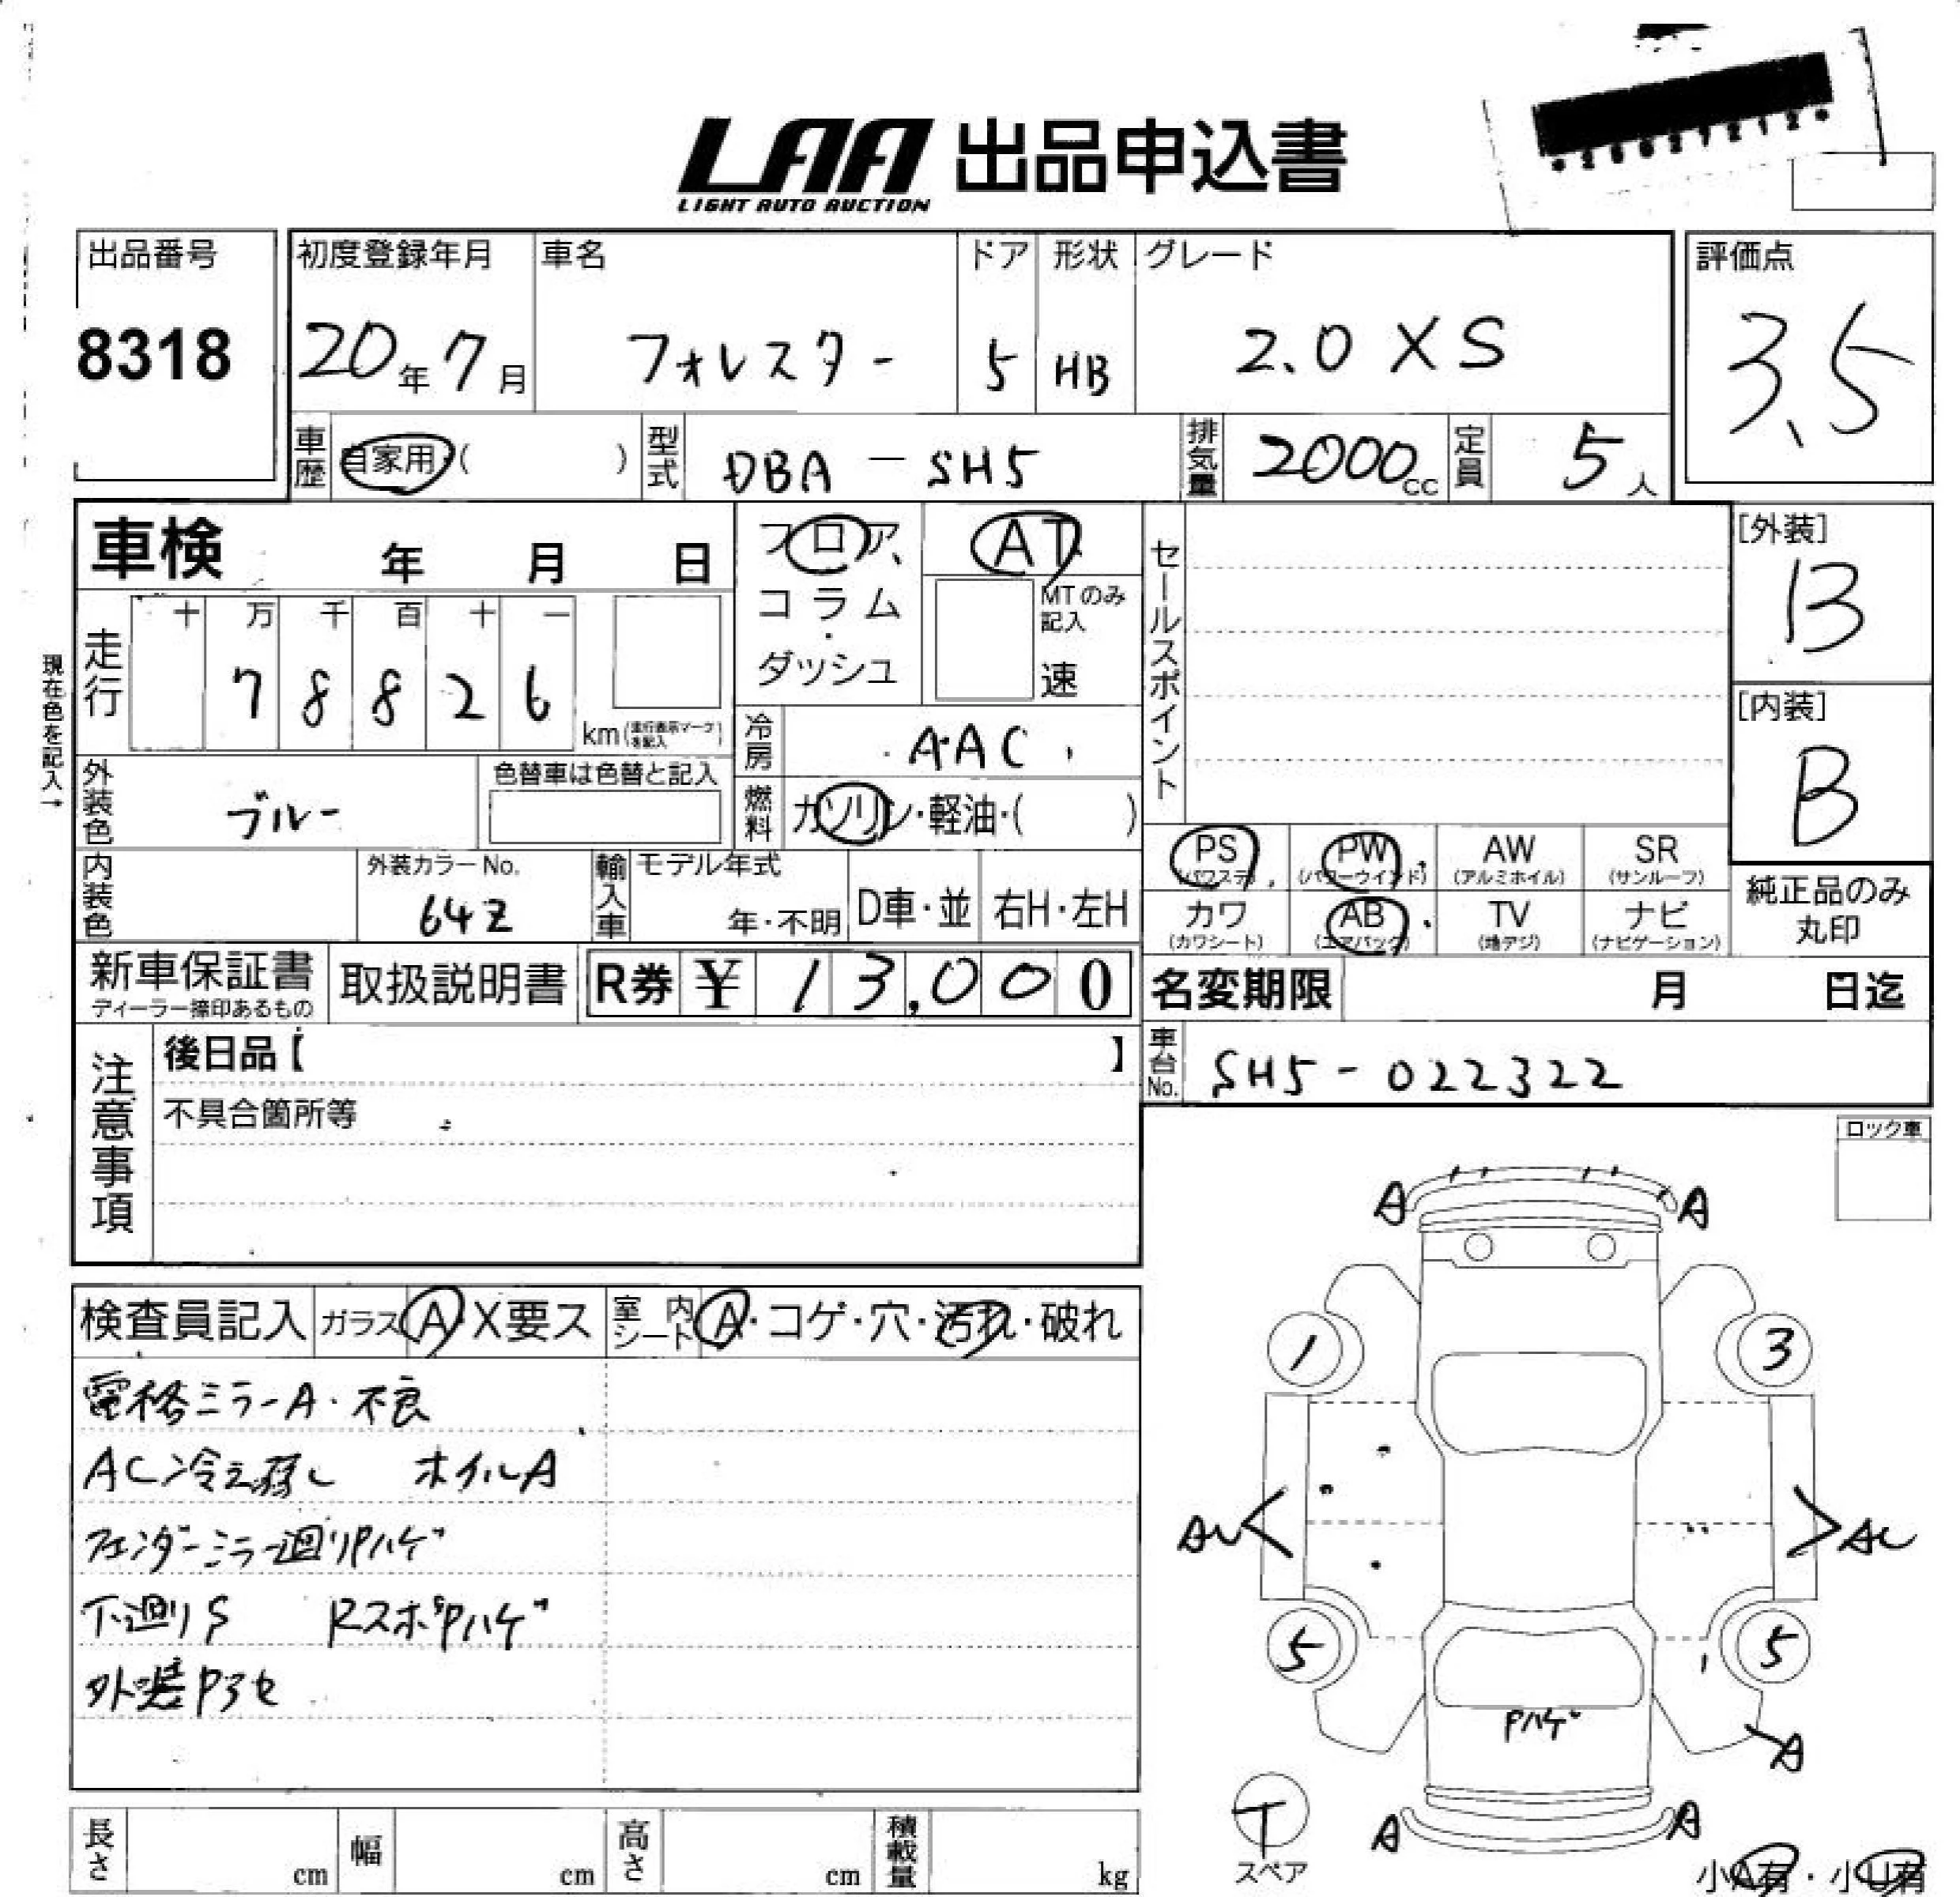 LAA 出品申込書
LIGHT AUTO AUCTION
出品番号
8318
初度登録年月
20年7月
車名
フォレスター
ドア
5
形状
HB
グレード
2.0 XS
評価点
3.5
車歴 自家用・( )
型式 DBA-SH5
排気量 2000cc
定員 5人
車検 年 月 日
フロア・コラム・ダッシュ
AT
MTのみ記入
速
セールスポイント
[外装]
B
[内装]
B
現在色を記入→
走行 十 万 千 百 十 一
7 8 8 2 6
km(走行表示マークを記入)
冷房 AAC
外装色 ブルー
色替車は色替と記入
燃料 ガソリン・軽油・( )
PS (パワステ) PW (パワーウインド) AW (アルミホイル) SR (サンルーフ)
内装色
外装カラーNo.
64Z
輸入車 モデル年式
年・不明 D車・並 右H・左H
カワ (カワシート) AB (エアバック) TV (地デジ) ナビ (ナビゲーション)
純正品のみ
丸印
新車保証書
ディーラー捺印あるもの
取扱説明書
R券 ¥ 13,000
名変期限 月 日迄
注意事項
後日品【 】
車台No. SH5-022322
不具合箇所等
ロック車
検査員記入 ガラス A X要ス 室内シート A・コゲ・穴・汚れ・破れ
電格ミラーA・不良
AC冷え弱し ホイルA
フェンダーミラー廻りPハゲ
下廻りS RスポPハゲ
外装Pヤセ
A A
1 3
AU AU
5 5
Pハゲ
A
T
スペア
A A
小A有・小U有
長さ cm 幅 cm 高さ cm 積載量 kg